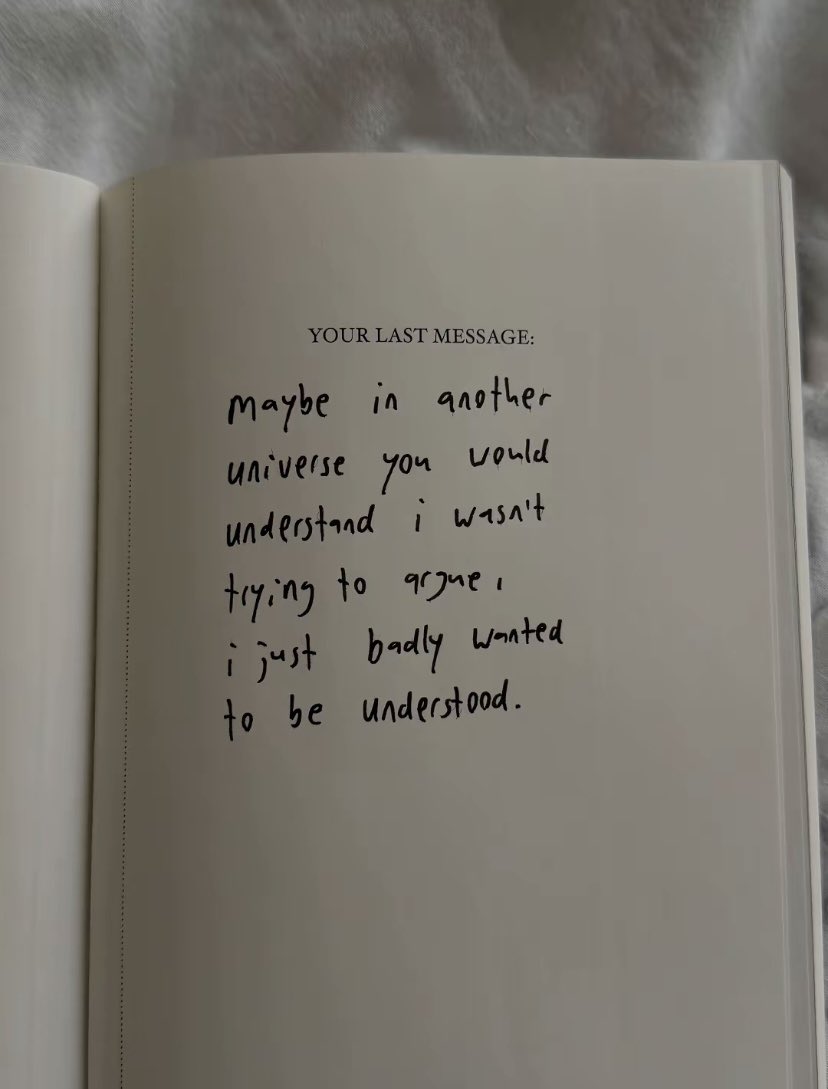 YOUR LAST MESSAGE:
maybe in another
universe you would
understand i wasn't
trying to argue,
i just badly wanted
to be understood.